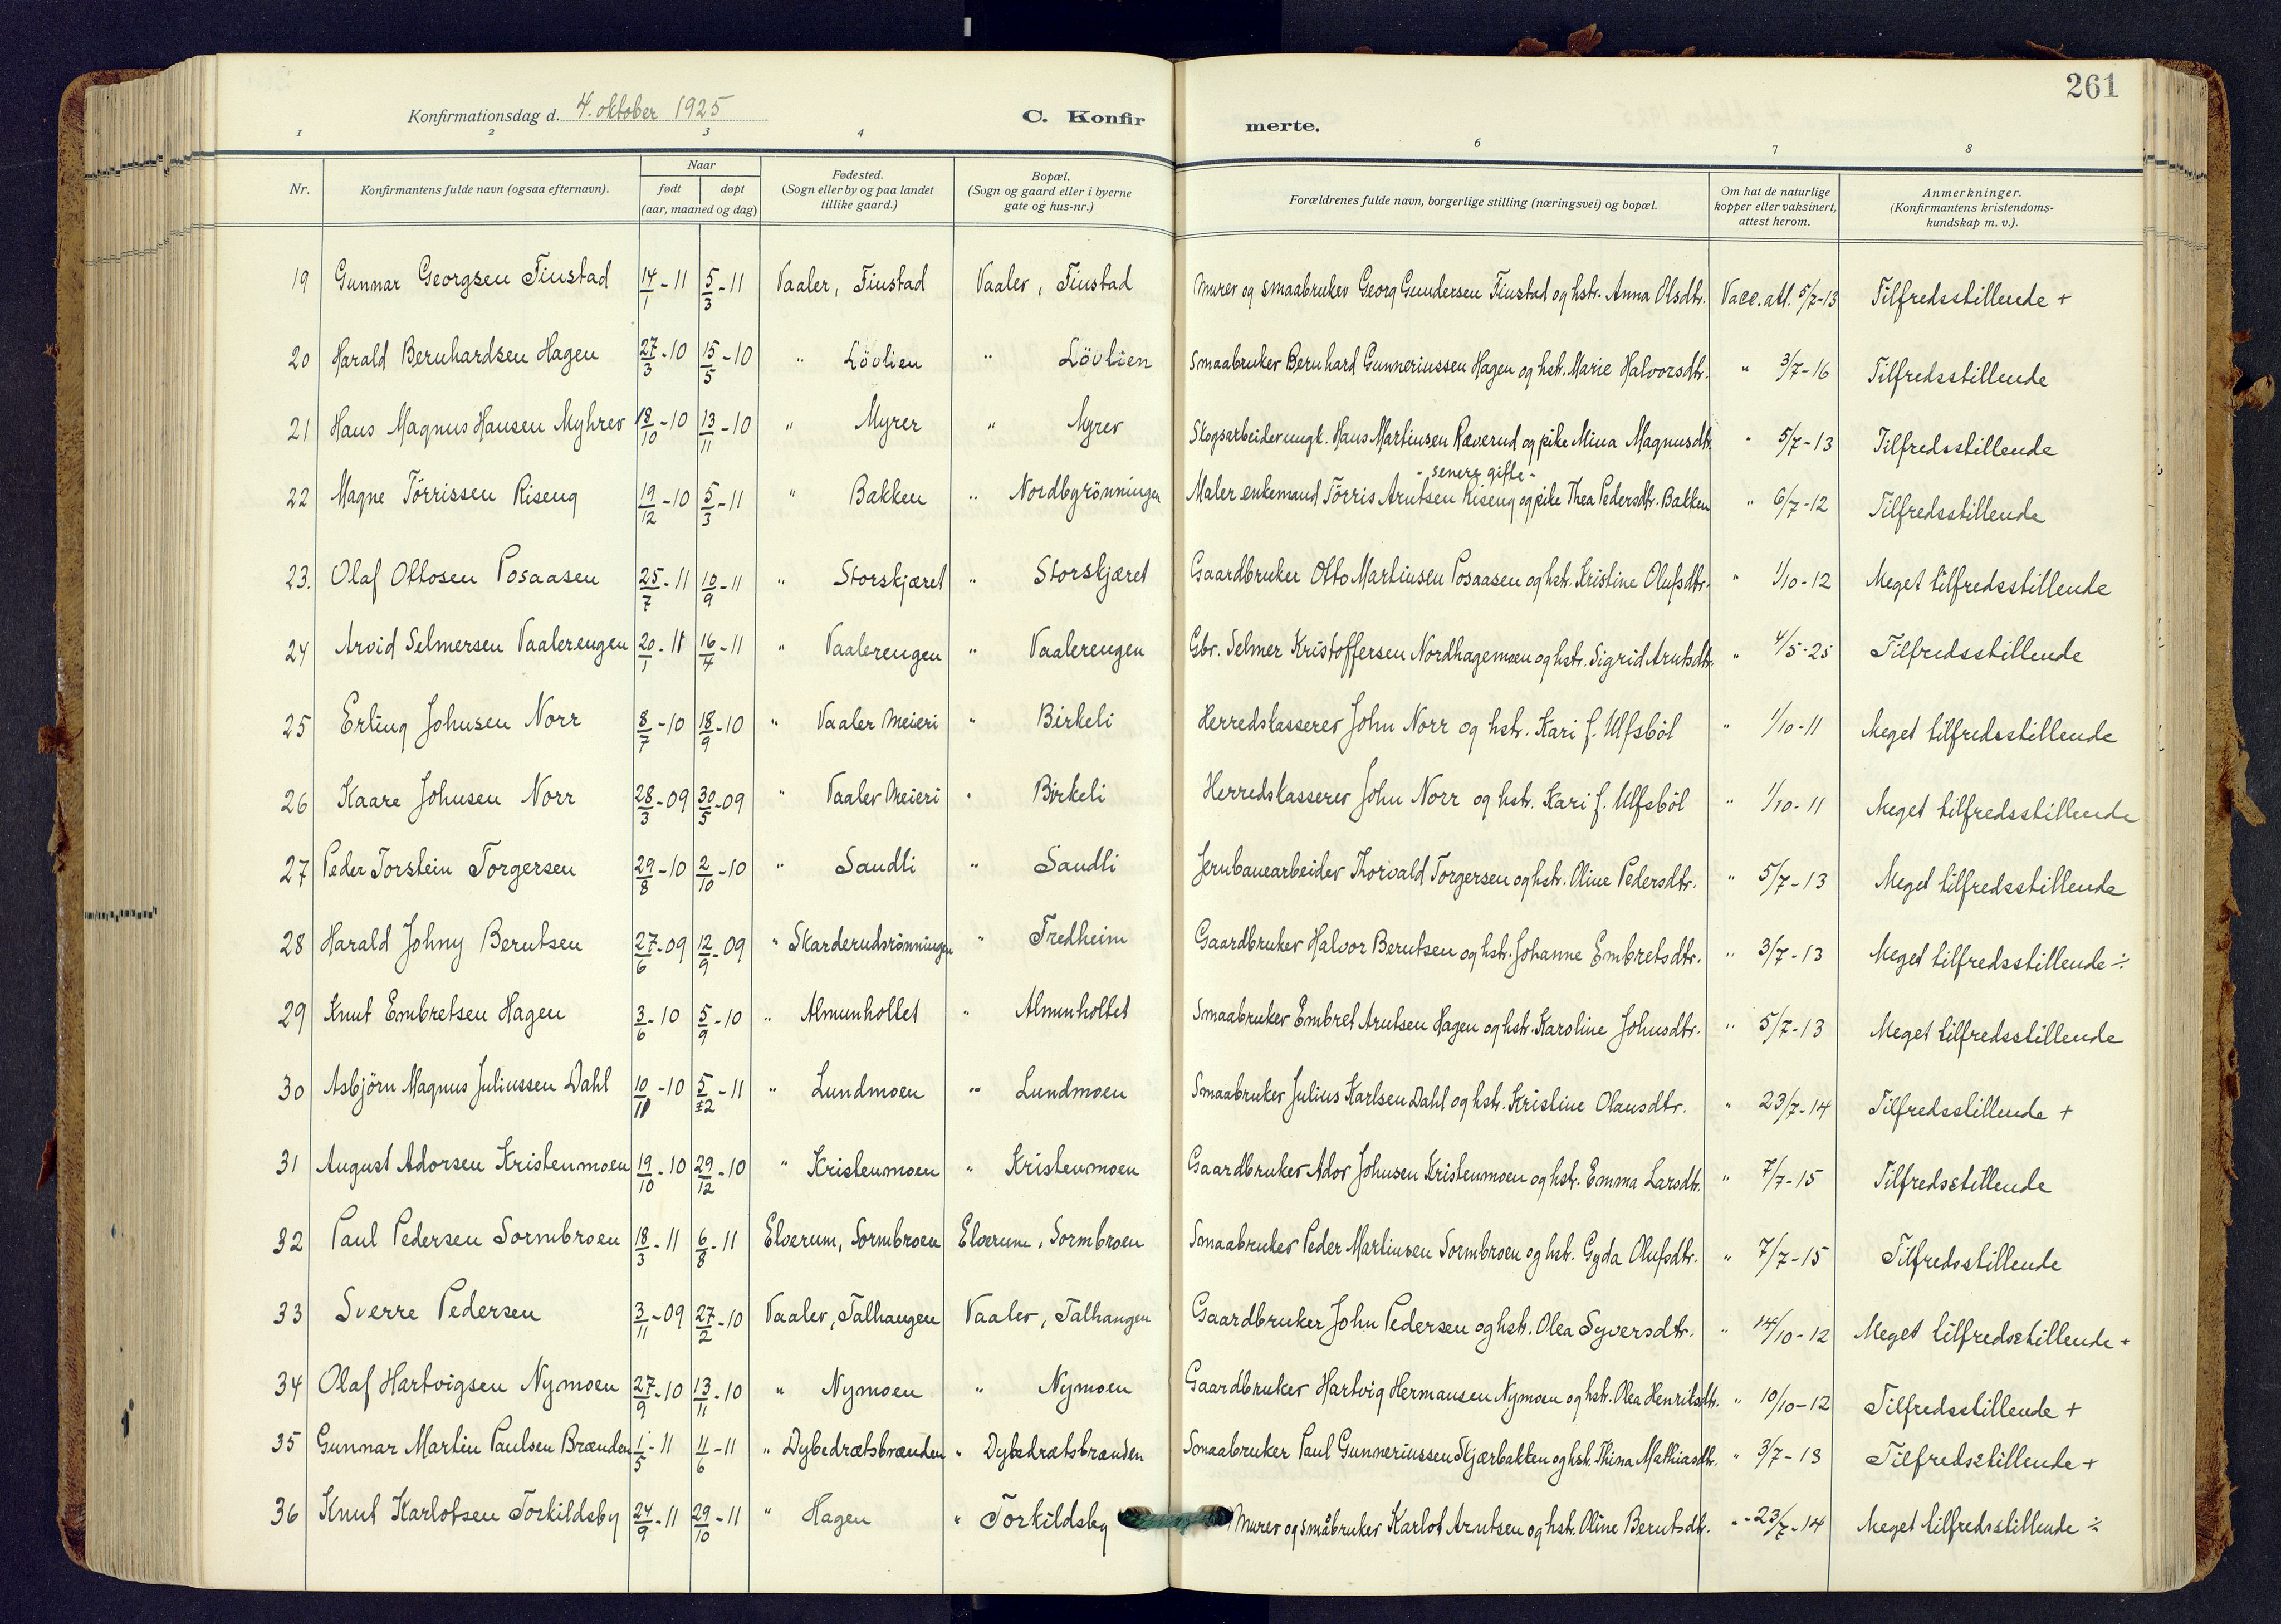 261
Konfirmationsdag d. 4. oktober 1925
C. Konfirmerte.
1 2 3 4 6 7 8
Nr. | Konfirmantens fulde navn (ogsaa efternavn). | Naar født | døpt (aar, maaned og dag) | Fødested. (Sogn eller by og paa landet tillike gaard.) | Bopæl. (Sogn og gaard eller i byerne gate og hus-nr.) | Forældrenes fulde navn, borgerlige stilling (næringsvei) og bopæl. | Om hat de naturlige kopper eller vaksinert, attest herom. | Anmerkninger. (Konfirmantens kristendomskundskap m. v.).
19 Gunnar Georgsen Finstad 14/1-11 5/3-11 Vaaler, Finstad Vaaler, Finstad Murer og smaabruker Georg Gundersen Finstad og hstr. Anna Olsdtr. Vacc. att. 5/7-13 Tilfredsstillende +
20 Harald Bernhardsen Hagen 27/3-10 15/5-10 " Lövlien " Lövlien Smaabruker Bernhard Gunneriussen Hagen og hstr. Marie Halvorsdtr. " 3/7-16 Tilfredsstillende
21 Hans Magnus Hansen Myhrer 18/10-10 13/11-10 " Myrer " Myrer Skogsarbeider ungk. Hans Martinsen Ræverud og pike Mina Magnusdtr. " 5/7-13 Tilfredsstillende
22 Magne Törrissen Riseng 19/12-10 5/3-11 " Bakken " Nordbygrönningen Maler enkemand Törris Arntsen Riseng og pike Thea Pedersdtr. Bakken - senere gifte - " 6/7-12 Tilfredsstillende
23. Olaf Ottosen Posaasen 25/7-11 10/9-11 " Storskjæret " Storskjæret Gaardbruker Otto Martinsen Posaasen og hstr. Kristine Olufsdtr. " 1/10-12 Meget tilfredsstillende
24 Arvid Selmersen Vaalerengen 20/1-11 16/4-11 " Vaalerengen " Vaalerengen Gbr. Selmer Kristoffersen Nordhagemoen og hstr. Sigrid Arntsdtr. " 4/5-25 Tilfredsstillende
25 Erling Johnsen Norr 8/7-10 18/9-10 " Vaaler Meieri " Birkeli Herredskasserer John Norr og hstr. Kari f. Ulfsböl " 1/10-11 Meget tilfredsstillende
26 Kaare Johnsen Norr 28/3-09 30/5-09 " Vaaler Meieri " Birkeli Herredskasserer John Norr og hstr. Kari f. Ulfsböl " 1/10-11 Meget tilfredsstillende
27 Peder Torstein Torgersen 29/8-10 2/10-10 " Sandli " Sandli Jernbanearbeider Thorvald Torgersen og hstr. Oline Pedersdtr. " 5/7-13 Meget tilfredsstillende
28 Harald Johny Berntsen 27/6-09 12/9-09 " Skarderudsrönningen " Fredheim Gaardbruker Halvor Berntsen og hstr. Johanne Embretsdtr. " 3/7-13 Meget tilfredsstillende ÷
29 Knut Embretsen Hagen 3/6-10 5/9-10 " Almunholtet " Almunholtet Smaabruker Embret Arntsen Hagen og hstr. Karoline Johnsdtr. " 5/7-13 Meget tilfredsstillende
30 Asbjörn Magnus Juliussen Dahl 10/11-10 5/2-11 " Lundmoen " Lundmoen Smaabruker Julius Karlsen Dahl og hstr. Kristine Olausdtr. " 23/7-14 Tilfredsstillende +
31 August Adorsen Kristenmoen 19/10-10 29/12-10 " Kristenmoen " Kristenmoen Gaardbruker Ador Johnsen Kristenmoen og hstr. Emma Larsdtr. " 7/7-15 Tilfredsstillende
32 Paul Pedersen Sormbroen 18/3-11 6/8-11 Elverum, Sormbroen Elverum, Sormbroen Smaabruker Peder Martinsen Sormbroen og hstr. Gyda Olufsdtr. " 7/7-15 Tilfredsstillende
33 Sverre Pedersen 3/11-09 27/2-10 Vaaler, Talhaugen Vaaler, Talhaugen Gaardbruker John Pedersen og hstr. Olea Syversdtr. " 14/10-12 Meget tilfredsstillende +
34 Olaf Hartvigsen Nymoen 27/9-10 13/11-10 " Nymoen " Nymoen Gaardbruker Hartvig Hermansen Nymoen og hstr. Olea Henriksdtr. " 10/10-12 Tilfredsstillende +
35 Gunnar Martin Paulsen Brænden 1/5-11 11/6-11 " Dybedrætsbrænden " Dybedrætsbrænden Smaabruker Paul Gunneriussen Skjærbakken og hstr. Thina Mathiasdtr. " 3/7-13 Tilfredsstillende +
36 Knut Karlotsen Torkildsby 24/9-11 29/10-11 " Hagen " Torkildsby Murer og småbruker Karlot Arntsen og hstr. Oline Berntsdtr. " 23/7-14 Meget tilfredsstillende ÷